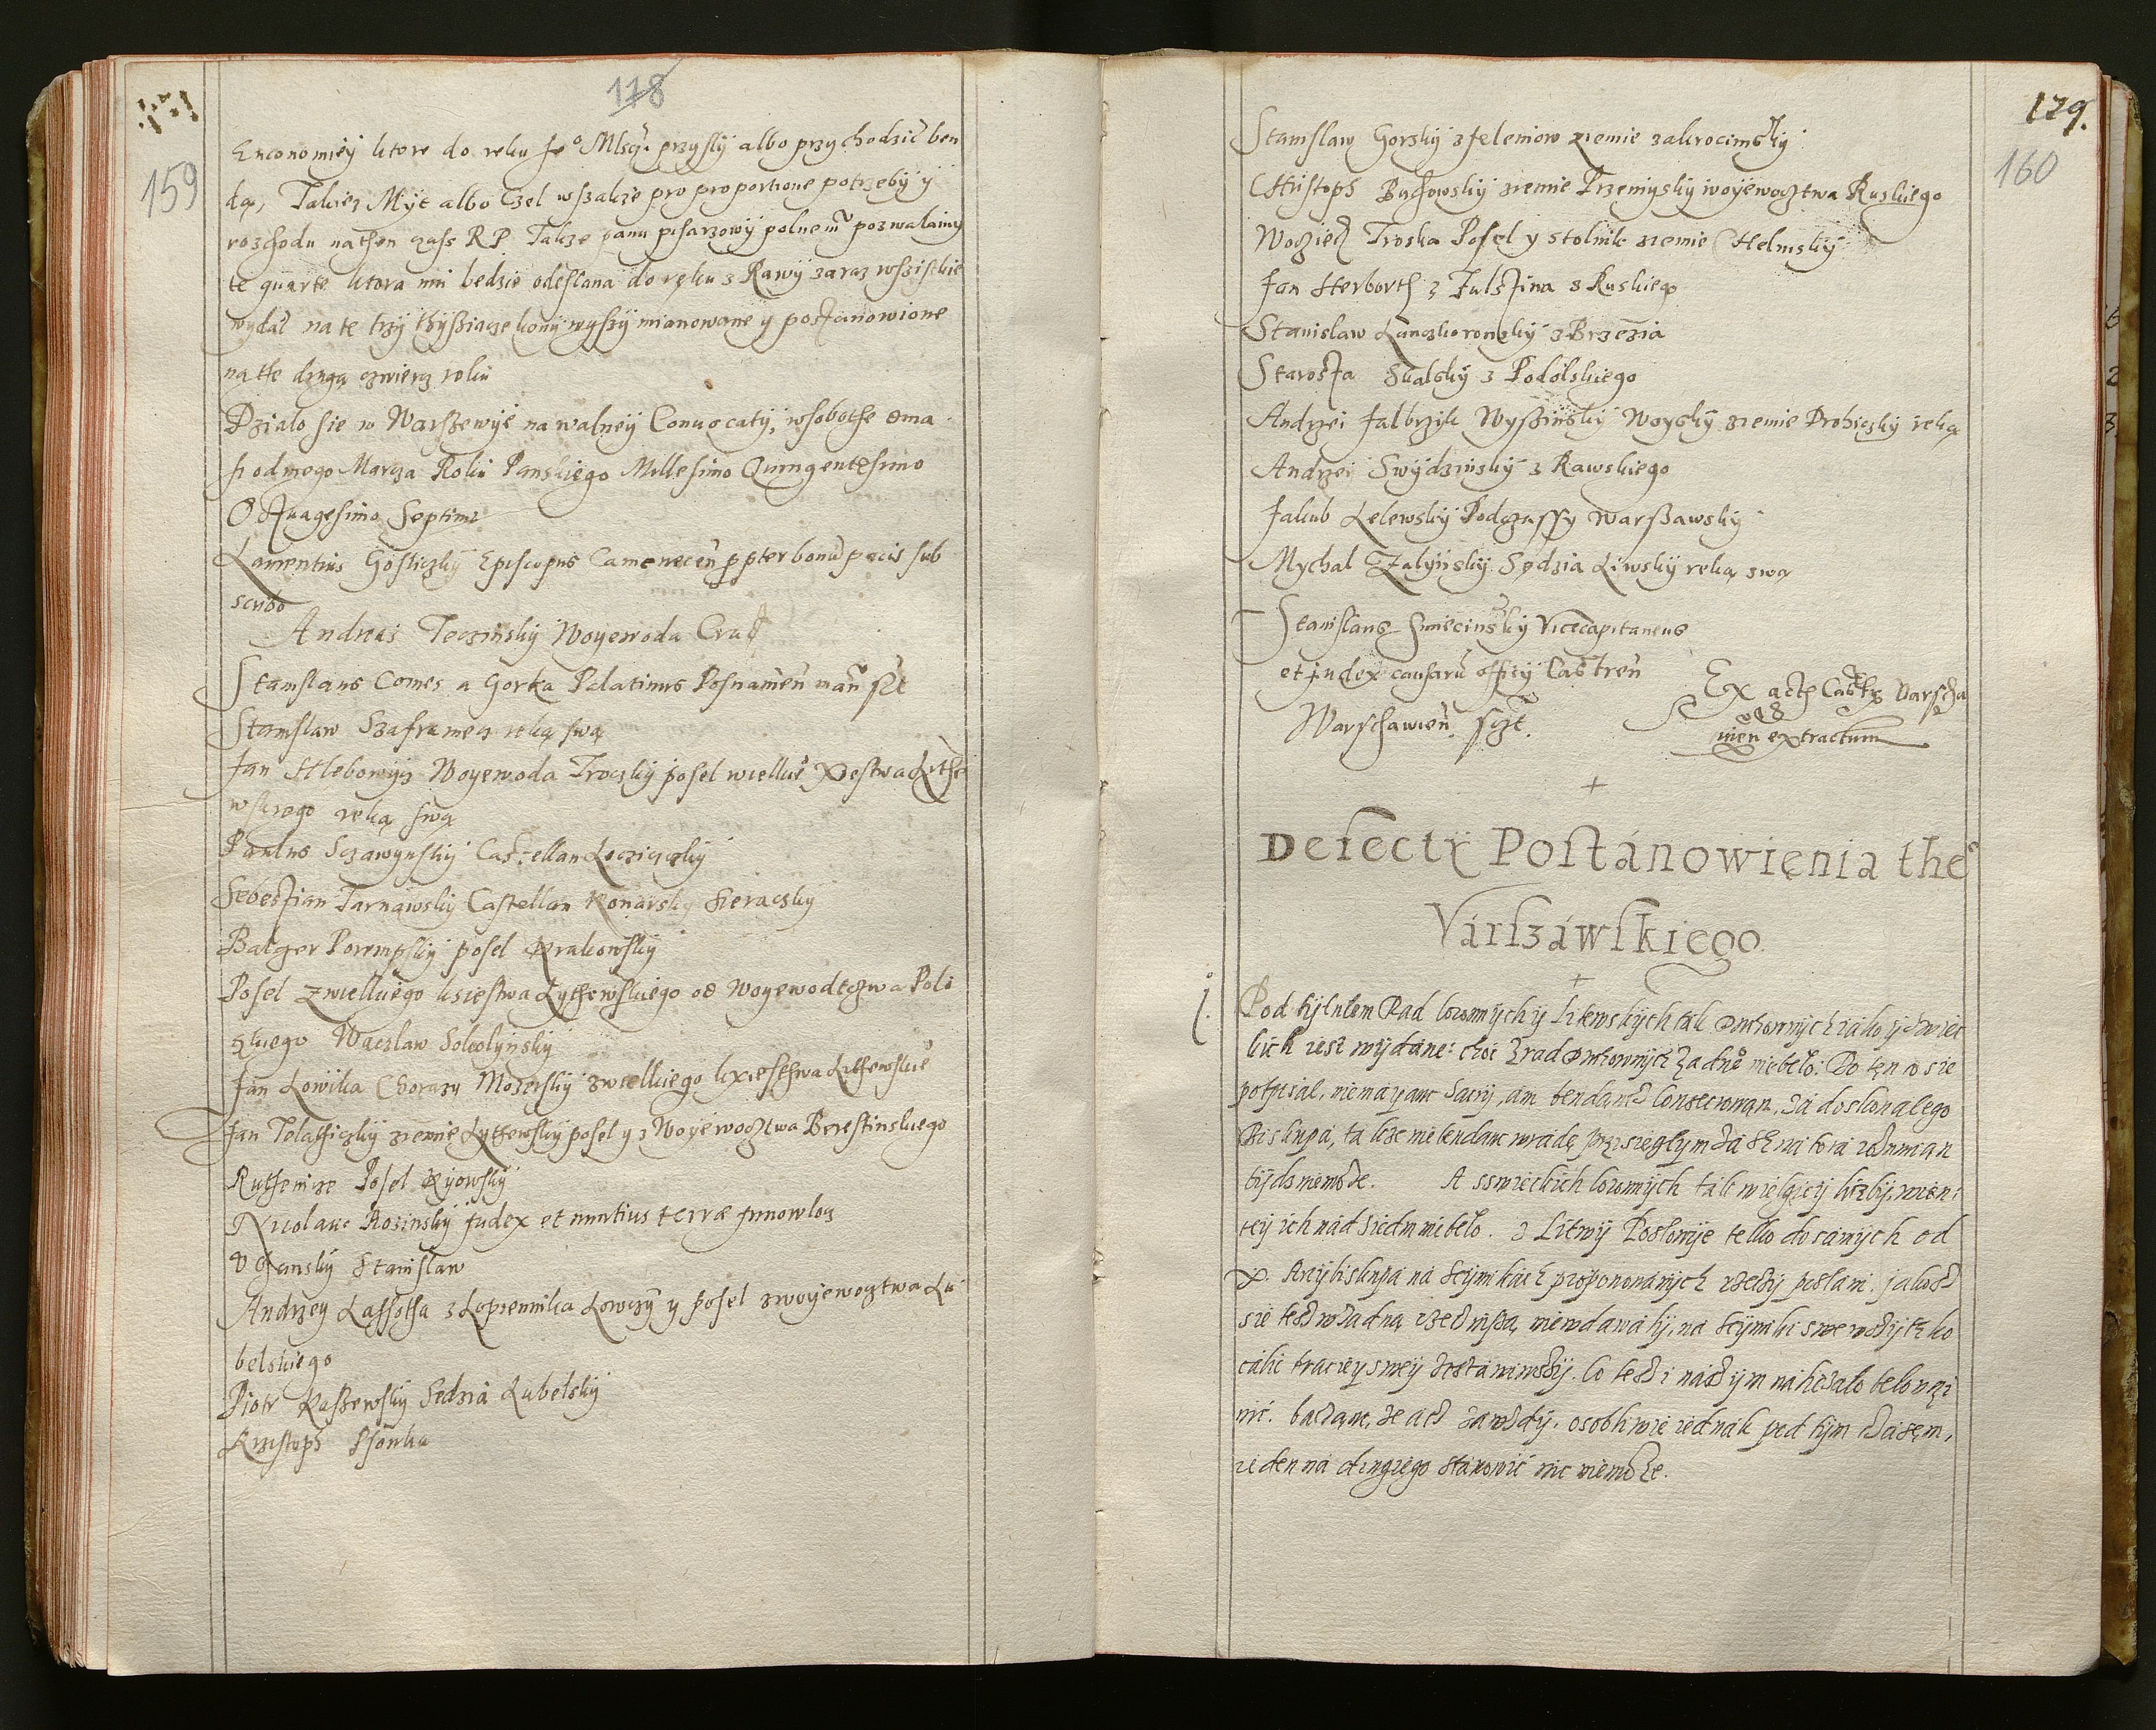 178
159
Enconomiey ktore do reku Je° Mlsczi przysly albo przychodzić ben
dą, Takiez Myt albo Czel wszakze pro proportione potrzeby y
rozchodu nathen czass RP Takze panu pisarzowy polnemu pozwalamy
te quarte ktora mu bedzie odeslana do ręku z Rawy zaraz wszistkie
wydać na te trzy thysiącze kony wyszy mianowane y postanowione
na the drugą czwiercz roku
Działo sie w Warszewye na walney Conuocatÿ, w sobothe osma
siodmego Marca Roku Panskiego Millesimo Quingentesimo
Octuagesimo Septimo
Laurentius Gosliczky Episcopus Camenecen ppter bonu pacis sub
scribo
Andreas Teczinsky Woyewoda Crac
Stanislaus Comes a Gorka Palatinus Posnanien manu sst
Stanislaw Szafraniecz reką swą
Jan Hlebowycz Woyewoda Troczky posel wielkie° Xiestwa Lithe
wskiego reką swą
Paulus Sczawynsky Castellan Lęcziczky
Sebestian Tarnawsky Castellan Konarsky Sieraczky
Balcer Porempsky posel Krakowsky
Posel z wielkiego ksiestwa Lythewskiego od Woyewodtczwa Polo
czkiego Waczlaw Sokolynsky
Jan Lowika Chorazy Mozerskij z wielkiego kxiesthwa Lithewskie°
Jan Telathiczky ziemie Lythewsky posel y z Woyewocztwa Berestinskiego
Ruthenicze Posel Kyowsky
Nicolaus Rosinsky Judex et nuntius terræ Junowloz
Vchansky Stanislaw
Andrzey Lassotha z Lopiennika Lowczy y posel z woyewocztwa Lu
belskiego
Piotr Kaszewsky Sedzia Lubelsky
Krzistoph Psonka
129.
160
Stanislaw Gorsky z Jeleniow ziemie zakrocimsky
Christoph Buchowsky ziemie Przemysky woyewocztwa Ruskiego
Wocziech Troska Posel y stolnik ziemie Chelmsky
Jan Herborth z Fulstina z Ruskiego
Stanislaw Lanczkoronsky z Brzezia
Starosta Skalsky z Podolskiego
Andrzei Jalbrzik Wyszinsky Woysky ziemie Drohiczky reką
Andrzei Swydzinsky z Rawskiego
Jakub Lelewsky Podczassy Warszawsky
Mychal Zalynsky Sędzia Liwsky reką swą
Stanislaus Smiecinsky Vicecapitaneus
et judex causaru officy Castren
Warschawien sszt.
Ex actis Castr Varscha
vien extractum
+
Defecty Postánowięnia the°
Várszáwskiego
1.
Pod tytulem Rad koronnych y Litewskych tak duchownych iako y swiec
kich iest wydane: choć z rad duchownych żadne° niebeło. Bo ten co sie
potpisal, niemaiąc Sacry, ani bendąc consecrowan, zá doskonalego
Biskupá, tákze niebendąc w radę przisięgłym zá Senatorá rozumian
bydz niemoże. A sswieckich koronnych ták wielgiey liczby, wien:
cey ich nád siedm niebeło. Z Litwy Posłowye telko do sámych od
X. Arcybiskupá ná Seymikách proponowanych rzeczy posłáni. jákosz
sie tesz w żadną rzecz inszą niewdawáli, ná Seymiki swe wszytko
cáłe braciey swey zostáwiwszy. Co tesz i nászym náleżało beło uczi
nić. bacząc, że acz zawzdy, osobliwie iednák pod tym czásem,
ieden ná drugiego stánowić nic niemoże.